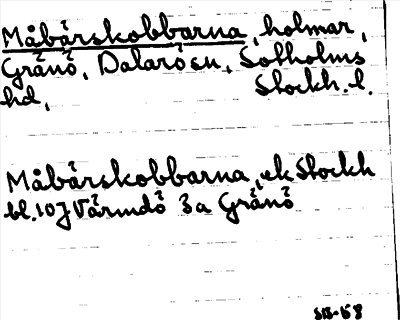 Måbärskobbarna, holmar,
Gränö, Dalarö sn, Sotholms
hd, Stockh. l.
Måbärskobbarna, ek Stockh
bl. 107 Värmdö 3a Gränö